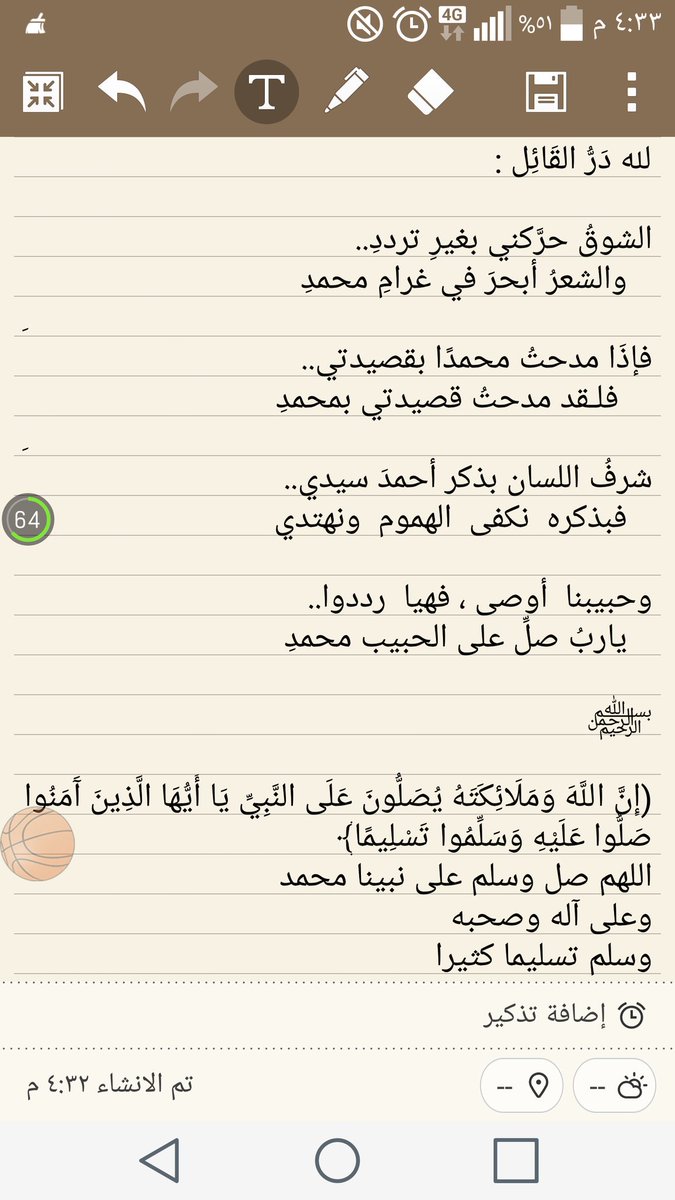 %٥١ 4G ٤:٣٣ م
T
لله دَرُّ القَائِل :
الشوقُ حرَّكني بغيرِ ترددِ..
والشعرُ أبحرَ في غرامِ محمدِ
فإذَا مدحتُ محمدًا بقصيدتي..
فلـقد مدحتُ قصيدتي بمحمدِ
شرفُ اللسان بذكر أحمدَ سيدي..
64
فبذكره نكفى الهموم ونهتدي
وحبيبنا أوصى ، فهيا رددوا..
ياربُ صلِّ على الحبيب محمدِ
﷽
(إنَّ اللَّهَ وَمَلَائِكَتَهُ يُصَلُّونَ عَلَى النَّبِيِّ يَا أَيُّهَا الَّذِينَ آَمَنُوا
صَلُّوا عَلَيْهِ وَسَلِّمُوا تَسْلِيمًا}·
اللهم صل وسلم على نبينا محمد
وعلى آله وصحبه
وسلم تسليما كثيرا
إضافة تذكير
تم الانشاء ٤:٣٢ م
-- --